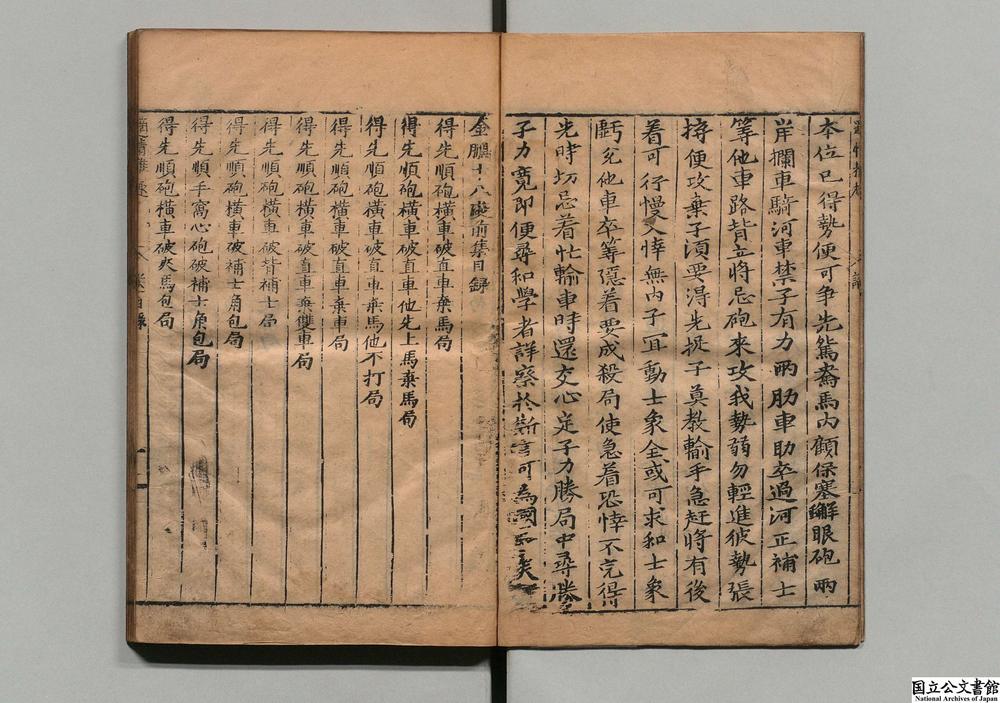 本位已得勢便可争先鴛鴦馬内顧保塞蟹眼砲兩
岸攔車騎河車禁子有力兩肋車助卒過河正補士
等他車路背立將忌砲來攻我勢弱勿輕進彼勢張
持便攻棄子湏要得先捉子莫教輸手急赶將有後
着可行慢入悻無内子冝動士象全或可求和士象
虧兌他車卒等隠着要成殺局使急着恐悻不完得
先時切忌着忙輸車時還交心定子力勝局中尋勝
子力寛即便尋和學者詳察於斯言可為國
金鵬十八變前集目録
得先順砲橫車破直車棄馬局
得先順砲橫車破直車他先上馬棄馬局
得先順砲橫車破直車棄馬他不打局
得先順砲橫車破直車棄車局
得先順砲橫車破直車棄雙車局
得先順砲橫車破背補士局
得先順砲橫車破補士角包局
得先順手窩心砲破補士角包局
得先順砲橫車破夾馬包局
国立公文書館
National Archives of Japan